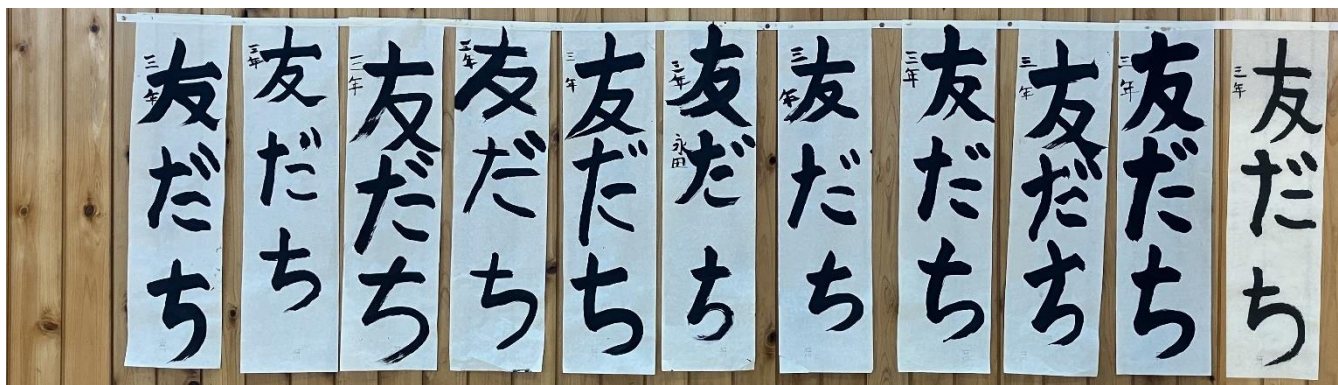 友だち
三年
友だち
三年
友だち
三年
友だち
三年
友だち
三年
友だち
三年 永田
友だち
三年
友だち
三年
友だち
三年
友だち
三年
友だち
三年